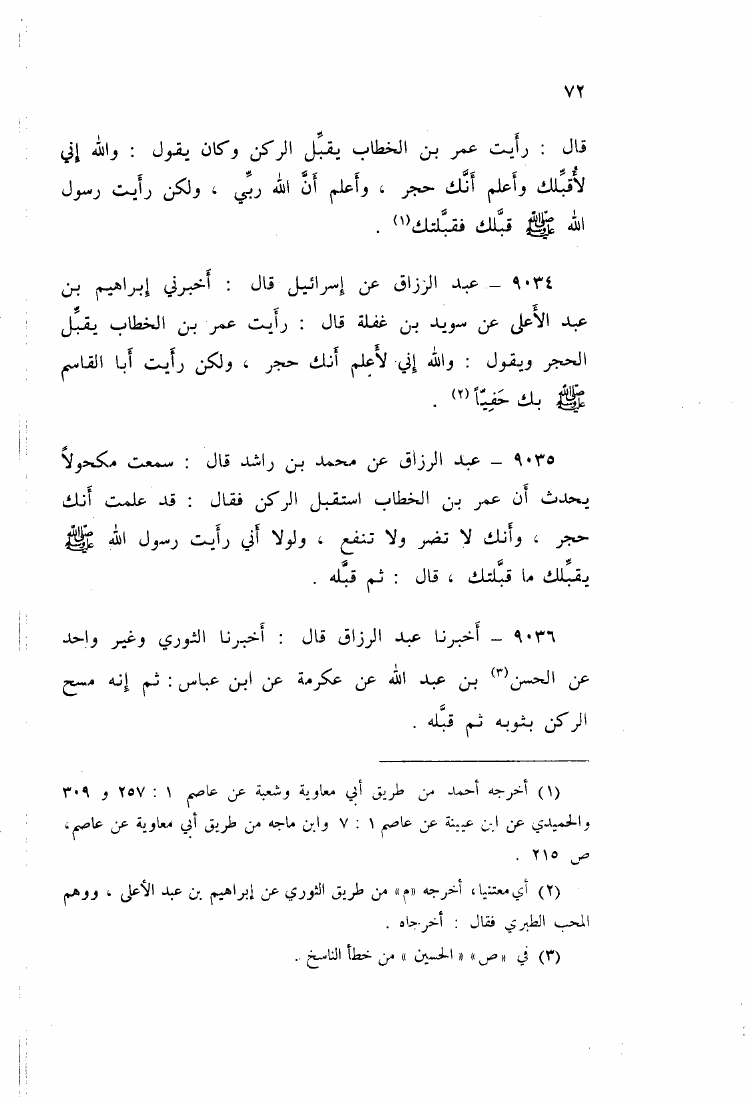 ٧٢
قال : رأيت عمر بن الخطاب يقبِّل الركن وكان يقول : والله إني
لأُقبِّلك وأعلم أنَّك حجر ، وأعلم أنَّ الله ربِّي ، ولكن رأيت رسول
الله ﷺ قبَّلك فقبَّلتك(١) .
٩٠٣٤ – عبد الرزاق عن إسرائيل قال : أخبرني إبراهيم بن
عبد الأعلى عن سويد بن غفلة قال : رأيت عمر بن الخطاب يقبِّل
الحجر ويقول : والله إني لأعلم أنك حجر ، ولكن رأيت أبا القاسم
ﷺ بك حَفِيّاً(٢) .
٩٠٣٥ – عبد الرزاق عن محمد بن راشد قال : سمعت مكحولاً
يحدث أن عمر بن الخطاب استقبل الركن فقال : قد علمت أنك
حجر ، وأنك لا تضر ولا تنفع ، ولولا أني رأيت رسول الله ﷺ
يقبِّلك ما قبَّلتك ، قال : ثم قبَّله .
٩٠٣٦ – أخبرنا عبد الرزاق قال : أخبرنا الثوري وغير واحد
عن الحسن(٣) بن عبد الله عن عكرمة عن ابن عباس : ثم إنه مسح
الركن بثوبه ثم قبَّله .
(١) أخرجه أحمد من طريق أبي معاوية وشعبة عن عاصم ١ : ٢٥٧ و ٣٠٩
والحميدي عن ابن عيينة عن عاصم ١ : ٧ وابن ماجه من طريق أبي معاوية عن عاصم،
ص ٢١٥ .
(٢) أي معتنيا، أخرجه «م» من طريق الثوري عن إبراهيم بن عبد الأعلى ، ووهم
المحب الطبري فقال : أخرجاه .
(٣) في «ص» «الحسين» من خطأ الناسخ .